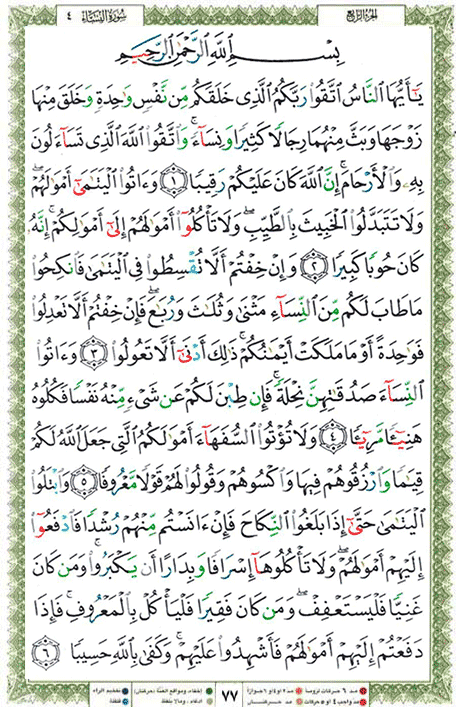 الجزء الرابع
سورة النساء ٤
بِسْمِ ٱللَّهِ ٱلرَّحْمَٰنِ ٱلرَّحِيمِ
يَٰٓأَيُّهَا ٱلنَّاسُ ٱتَّقُوا۟ رَبَّكُمُ ٱلَّذِى خَلَقَكُم مِّن نَّفْسٍ وَٰحِدَةٍ وَخَلَقَ مِنْهَا
زَوْجَهَا وَبَثَّ مِنْهُمَا رِجَالًا كَثِيرًا وَنِسَآءً ۚ وَٱتَّقُوا۟ ٱللَّهَ ٱلَّذِى تَسَآءَلُونَ
بِهِۦ وَٱلْأَرْحَامَ ۚ إِنَّ ٱللَّهَ كَانَ عَلَيْكُمْ رَقِيبًا ١ وَءَاتُوا۟ ٱلْيَتَٰمَىٰٓ أَمْوَٰلَهُمْ ۖ
وَلَا تَتَبَدَّلُوا۟ ٱلْخَبِيثَ بِٱلطَّيِّبِ ۖ وَلَا تَأْكُلُوٓا۟ أَمْوَٰلَهُمْ إِلَىٰٓ أَمْوَٰلِكُمْ ۚ إِنَّهُۥ
كَانَ حُوبًا كَبِيرًا ٢ وَإِنْ خِفْتُمْ أَلَّا تُقْسِطُوا۟ فِى ٱلْيَتَٰمَىٰ فَٱنكِحُوا۟
مَا طَابَ لَكُم مِّنَ ٱلنِّسَآءِ مَثْنَىٰ وَثُلَٰثَ وَرُبَٰعَ ۖ فَإِنْ خِفْتُمْ أَلَّا تَعْدِلُوا۟
فَوَٰحِدَةً أَوْ مَا مَلَكَتْ أَيْمَٰنُكُمْ ۚ ذَٰلِكَ أَدْنَىٰٓ أَلَّا تَعُولُوا۟ ٣ وَءَاتُوا۟
ٱلنِّسَآءَ صَدُقَٰتِهِنَّ نِحْلَةً ۚ فَإِن طِبْنَ لَكُمْ عَن شَىْءٍ مِّنْهُ نَفْسًا فَكُلُوهُ
هَنِيٓـًٔا مَّرِيٓـًٔا ٤ وَلَا تُؤْتُوا۟ ٱلسُّفَهَآءَ أَمْوَٰلَكُمُ ٱلَّتِى جَعَلَ ٱللَّهُ لَكُمْ
قِيَٰمًا وَٱرْزُقُوهُمْ فِيهَا وَٱكْسُوهُمْ وَقُولُوا۟ لَهُمْ قَوْلًا مَّعْرُوفًا ٥ وَٱبْتَلُوا۟
ٱلْيَتَٰمَىٰ حَتَّىٰٓ إِذَا بَلَغُوا۟ ٱلنِّكَاحَ فَإِنْ ءَانَسْتُم مِّنْهُمْ رُشْدًا فَٱدْفَعُوٓا۟
إِلَيْهِمْ أَمْوَٰلَهُمْ ۖ وَلَا تَأْكُلُوهَآ إِسْرَافًا وَبِدَارًا أَن يَكْبَرُوا۟ ۚ وَمَن كَانَ
غَنِيًّا فَلْيَسْتَعْفِفْ ۖ وَمَن كَانَ فَقِيرًا فَلْيَأْكُلْ بِٱلْمَعْرُوفِ ۚ فَإِذَا
دَفَعْتُمْ إِلَيْهِمْ أَمْوَٰلَهُمْ فَأَشْهِدُوا۟ عَلَيْهِمْ ۚ وَكَفَىٰ بِٱللَّهِ حَسِيبًا ٦
مد ٦ حركات لزوما
٧٧
تفخيم الراء
قلقلة